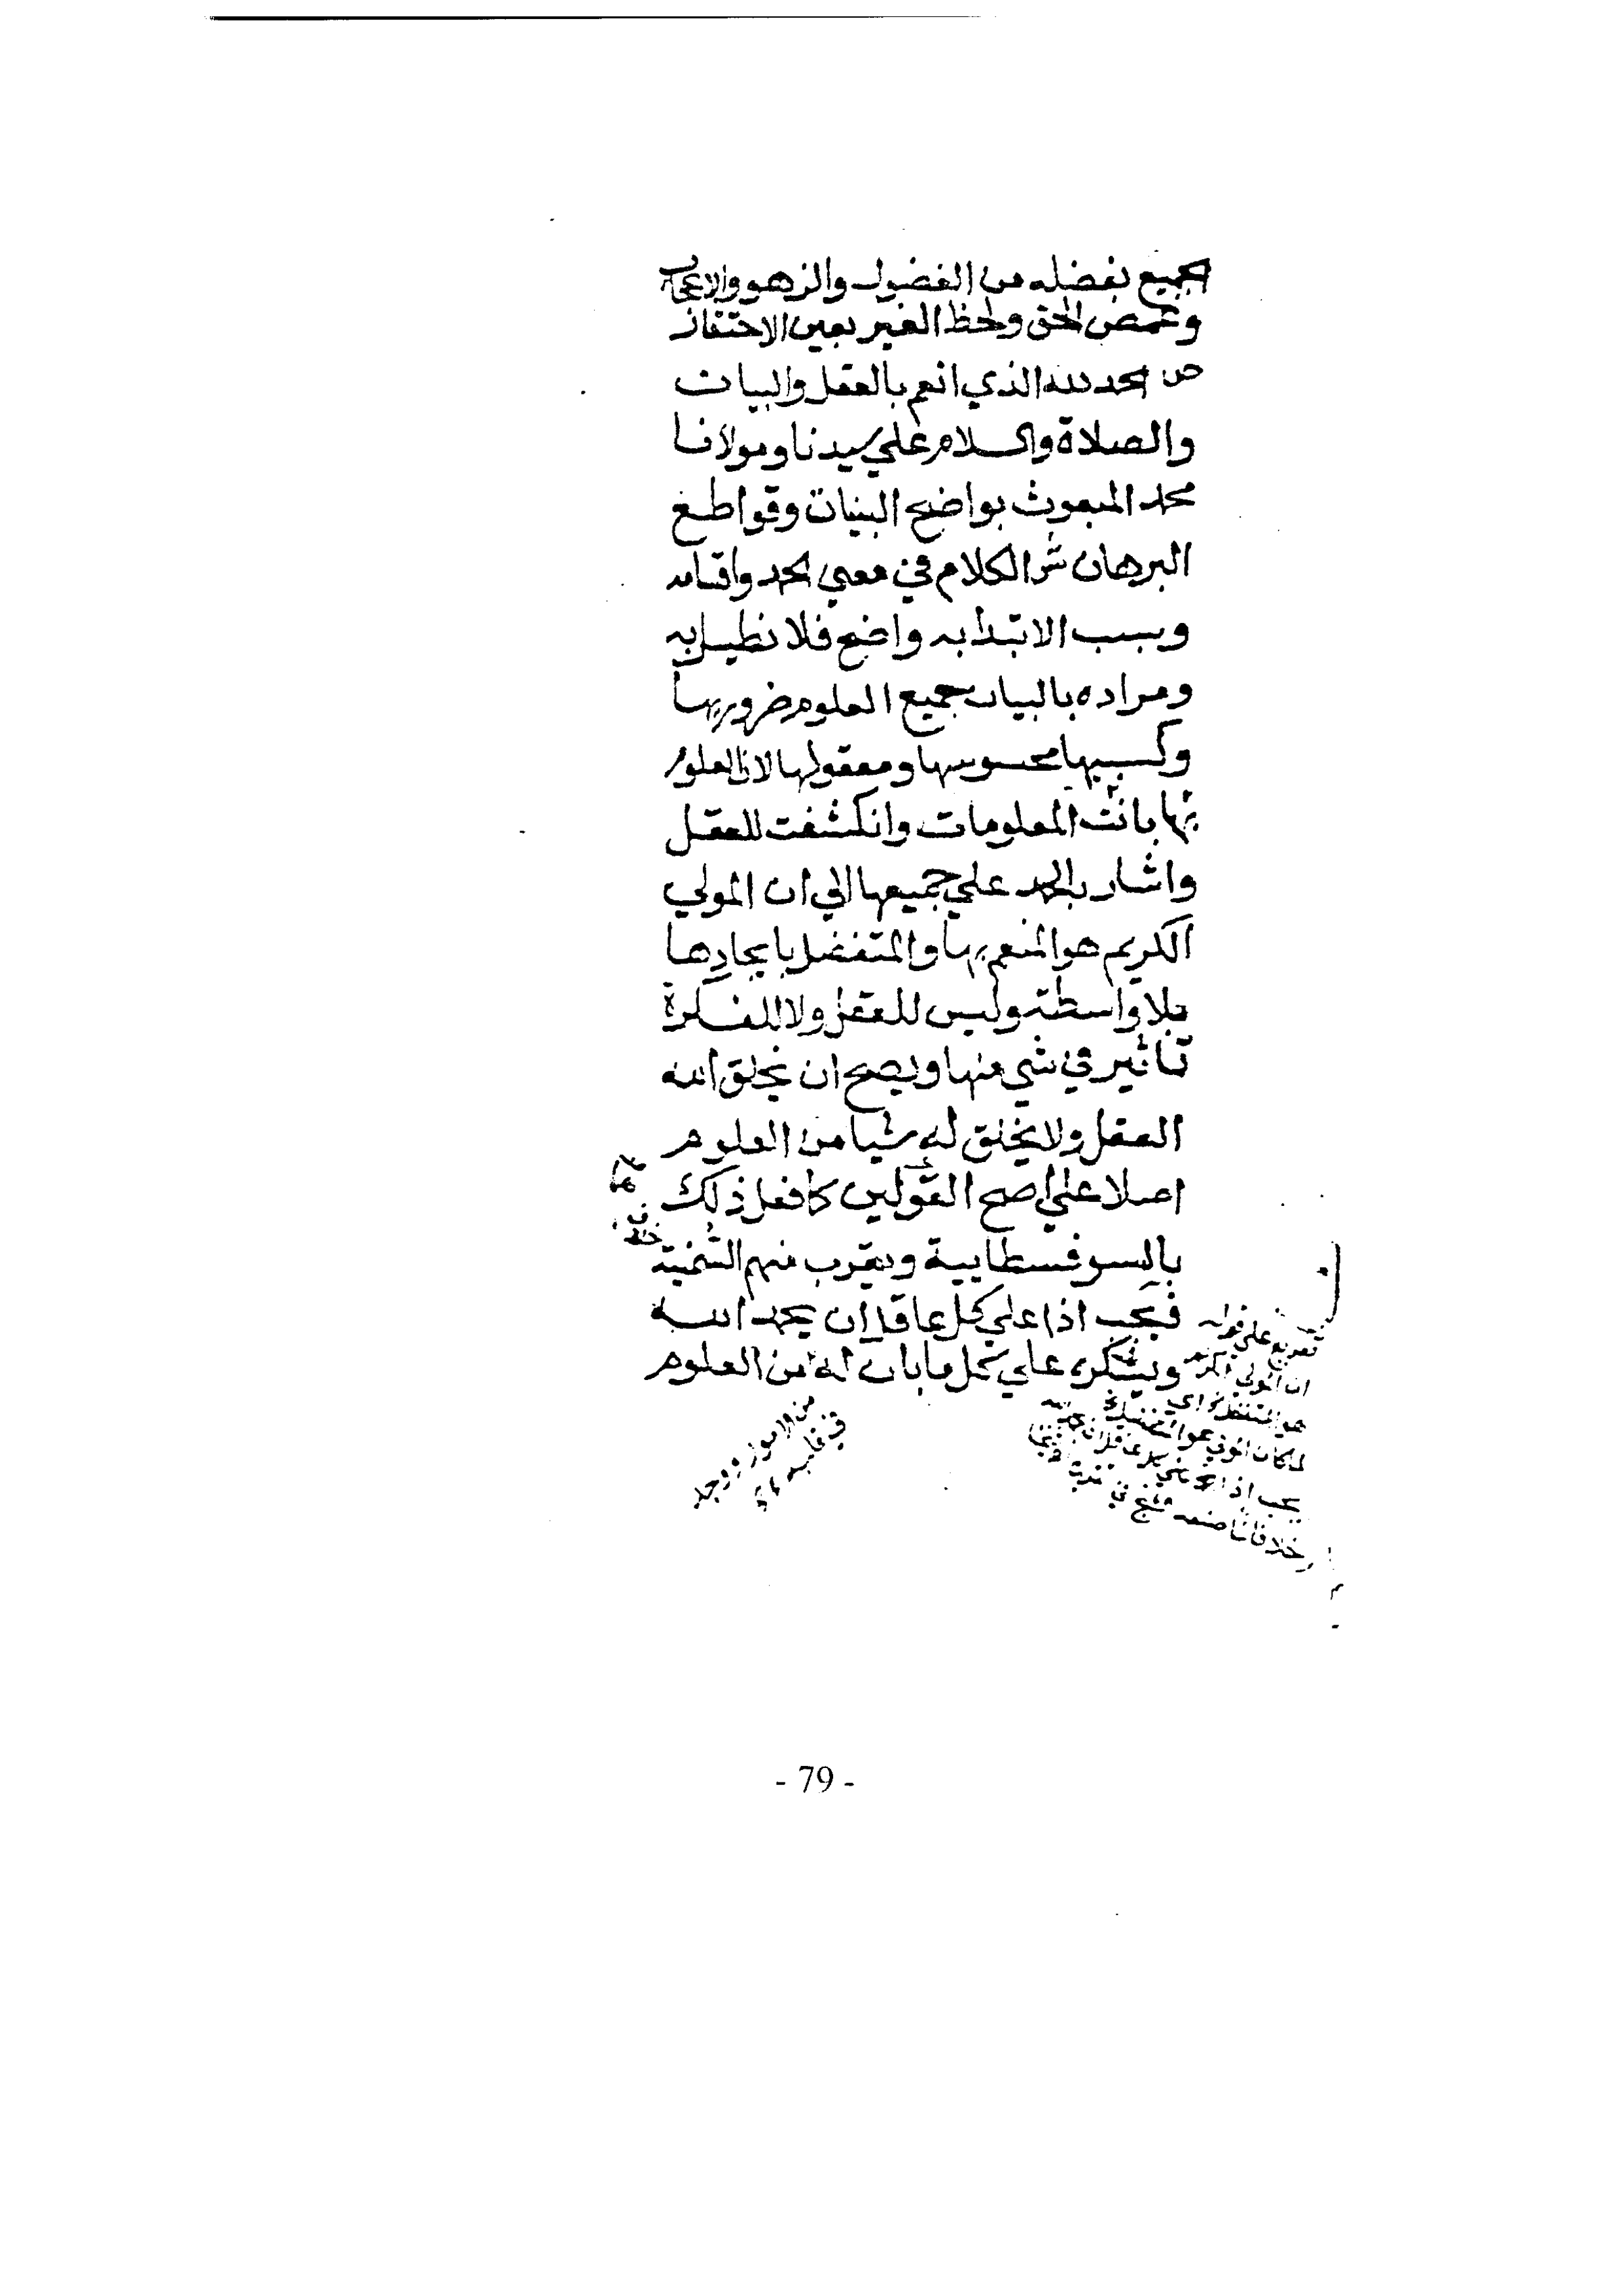 الجميع بفضله من الفضول والزهو والاعجاب
وغمص الحق ولحظ الغير بعين الاحتقار
ص الحمد لله الذي انعم بالعقل والبيان
والصلاة والسلام علي سيدنا ومولانا
محمد المبعوث بواضح البينات وقواطع
البرهان ش الكلام في معني الحمد واقسامه
وسبب الابتدا به واضح فلا نطيل به
ومراده بالبيان جميع العلوم ضروريها
وكسبيها محسوسها ومعقولها لان العلوم
بها بانت المعلومات وانكشفت للعقل
واشار بالحمد علي جميعها الي ان المولي
الكريم هو المنعم بها والمتفضل بايجادها
بلا واسطة وليس للعقل ولا للفكرة
تاثير في شي منها ويصح ان يخلق الله
العقل ولا يخلق له شيا من العلوم
اصلا علي اصح القولين كما فعل ذلك
بالسوفسطايية ويقرب منهم السمنية
فيجب اذا علي كل عاقل ان يحمد الله
ويشكره علي كل ما بان له من العلوم
تفريع علي قوله
ان المولي الكريم
هو المتفضل اي
لما كان المولي هو المتفضل
يجب اذا
من الامور ووجد
في قلبه
- 79 -